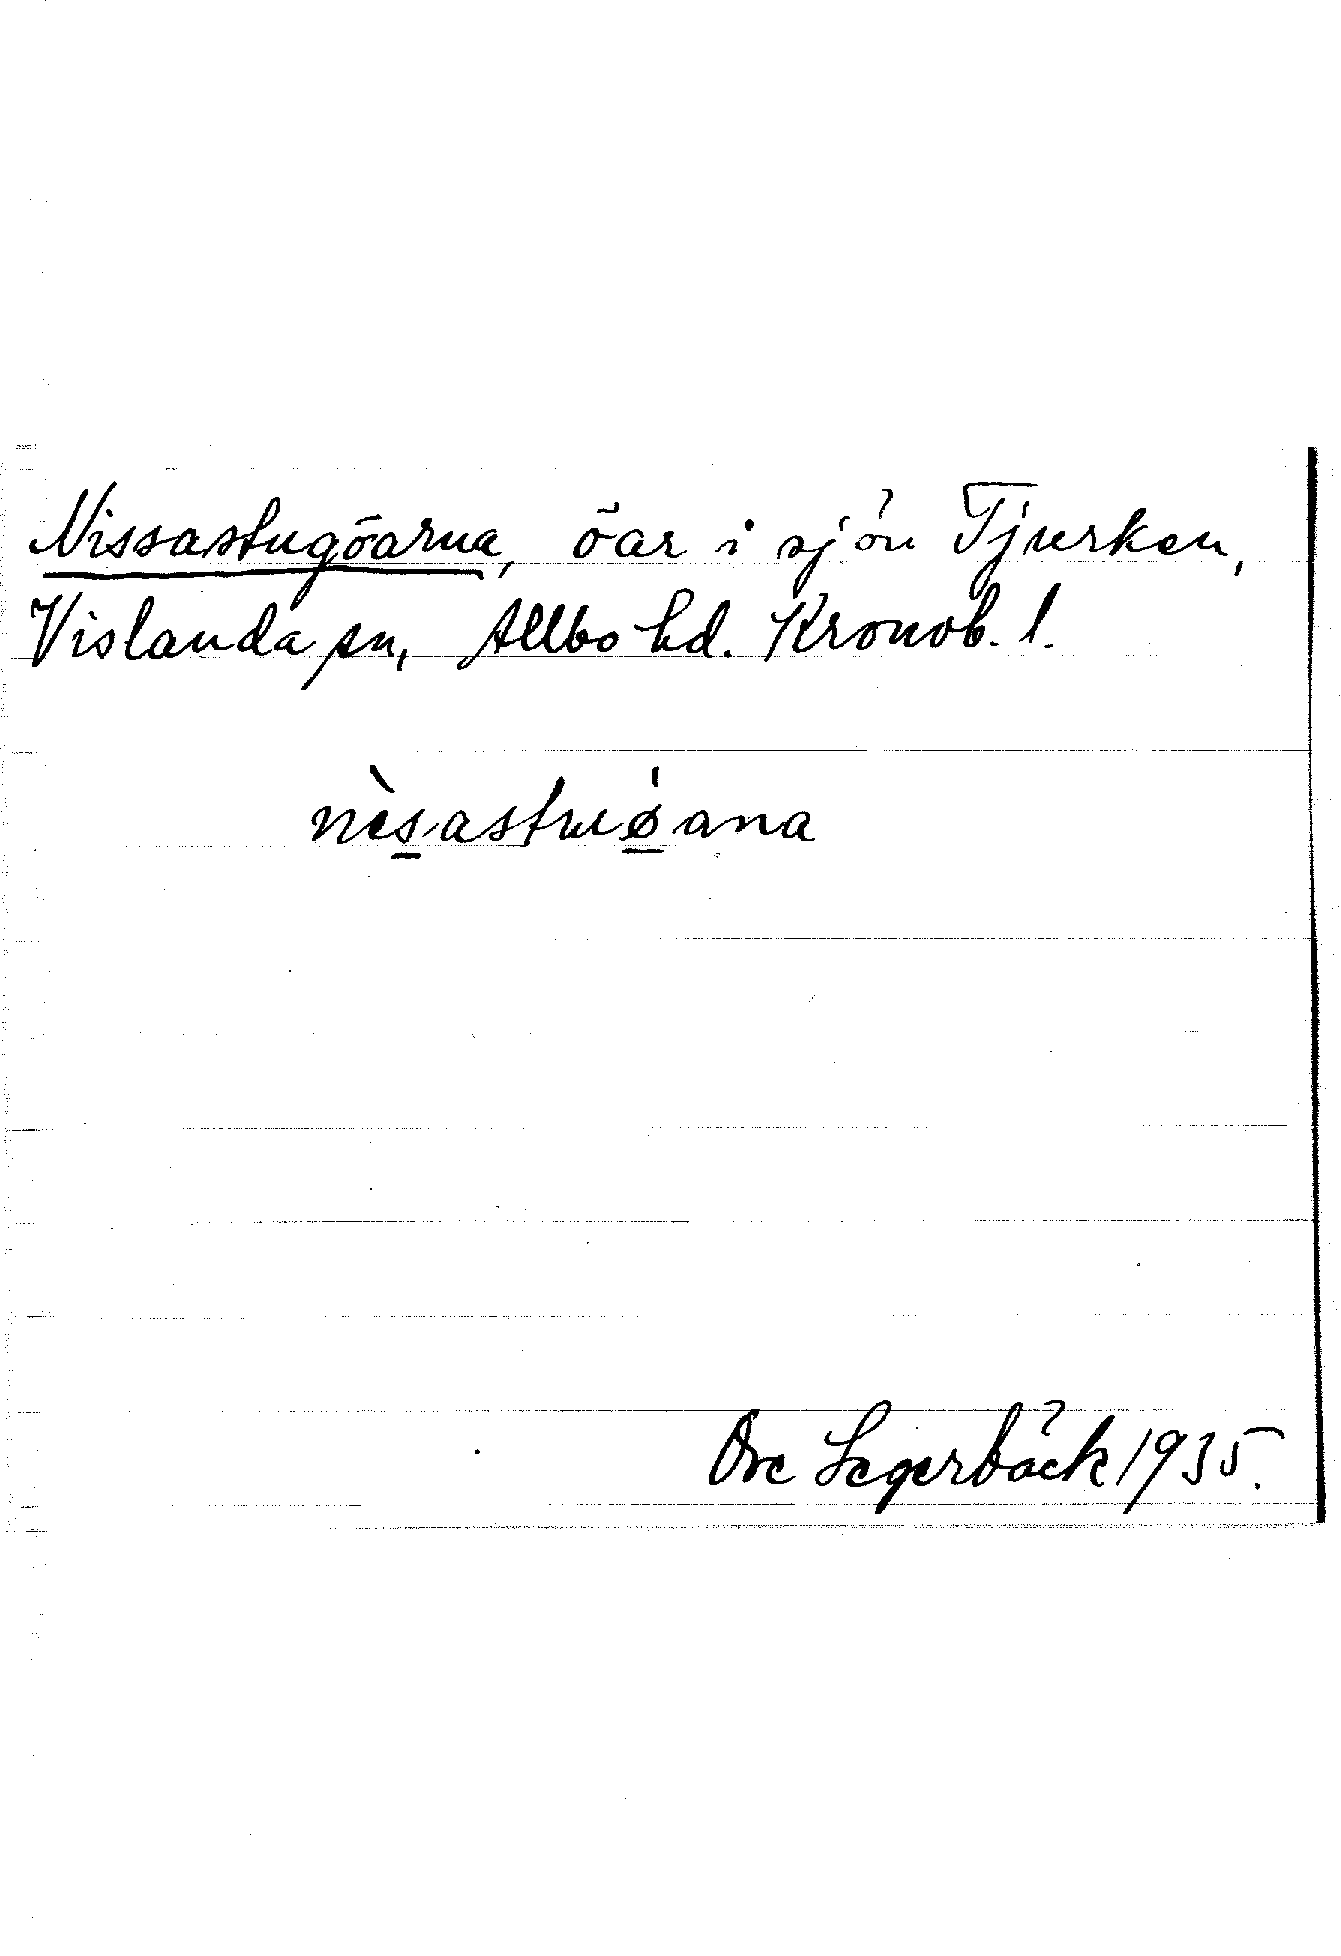 Nissastugöarna, öar i sjön Tjurken,
Vislanda sn, Allbo hd. Kronob. l.
nèsastuǿana
Ove Segerbäck 1935.